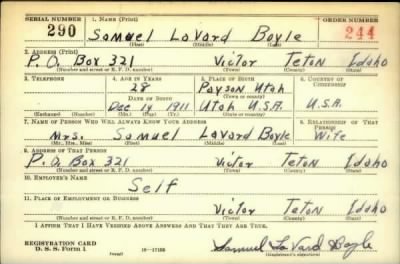 SERIAL NUMBER 1. NAME (Print) ORDER NUMBER
290 Samuel LaVard Boyle 244
(First) (Middle) (Last)
2. ADDRESS (Print)
P.O. Box 321 Victor Teton Idaho
(Number and street or R. F. D. number) (Town) (County) (State)
3. TELEPHONE 4. AGE IN YEARS 5. PLACE OF BIRTH 6. COUNTRY OF CITIZENSHIP
28 Payson Utah
(Town or county)
DATE OF BIRTH
Dec 14 1911 Utah U.S.A. U.S.A.
(Exchange) (Number) (Mo.) (Day) (Yr.) (State or country)
7. NAME OF PERSON WHO WILL ALWAYS KNOW YOUR ADDRESS 8. RELATIONSHIP OF THAT PERSON
Mrs. Samuel Lavard Boyle Wife
(Mr., Mrs., Miss) (First) (Middle) (Last)
9. ADDRESS OF THAT PERSON
P.O. Box 321 Victor Teton Idaho
(Number and street or R. F. D. number) (Town) (County) (State)
10. EMPLOYER'S NAME
Self
11. PLACE OF EMPLOYMENT OR BUSINESS
Victor Teton Idaho
(Number and street or R. F. D. number) (Town) (County) (State)
I AFFIRM THAT I HAVE VERIFIED ABOVE ANSWERS AND THAT THEY ARE TRUE.
REGISTRATION CARD
D. S. S. Form 1 16—17105 Samuel LaVard Boyle
(over) (Registrant's signature)